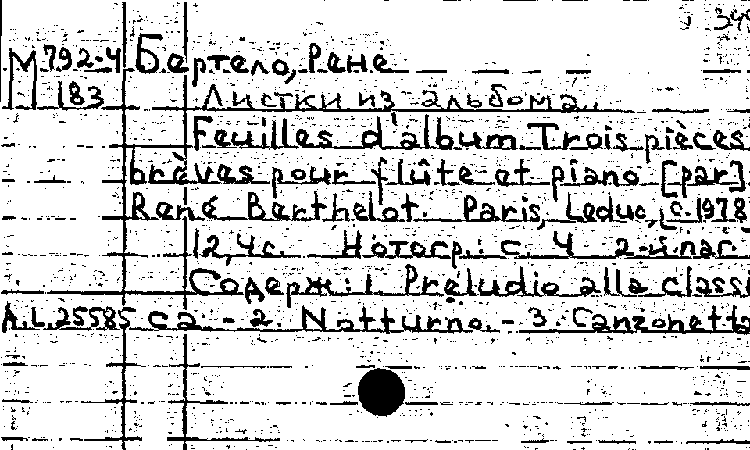 349
М 792-4 Бертело, Рене
183 Листки из альбома.
Feuilles d'album. Trois pièces
brèves pour flûte et piano [par]
René Berthelot. Paris, Leduc, c. 1978
12, 4 с. Нотогр.: с. 4 2-й паг.
Содерж: 1. Preludio alla classi
A.L.25585 ca. - 2. Notturno. - 3. Canzonetta